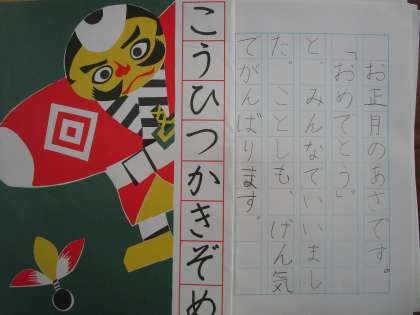 お正月のあさです。
「おめでとう」
と、みんなでいいまし
た。ことしも、げん気
でがんばります。
こうひつかきぞめ